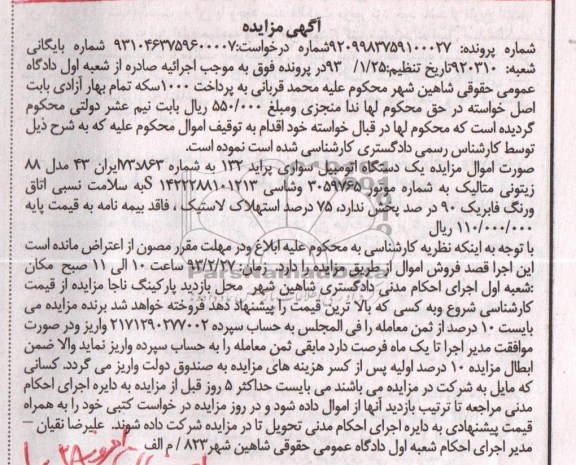 آگهی مزایده
شماره پرونده: ۹۲۰۹۹۸۳۷۵۹۱۰۰۰۲۷شماره درخواست:۹۳۱۰۴۶۳۷۵۹۶۰۰۰۰۷ شماره بایگانی
شعبه: ۹۲۰۳۱۰تاریخ تنظیم:۱/۲۵/ ۹۳در پرونده فوق به موجب اجرائیه صادره از شعبه اول دادگاه
عمومی حقوقی شاهین شهر محکوم علیه محمد قربانی به پرداخت ۱۰۰۰سکه تمام بهار آزادی بابت
اصل خواسته در حق محکوم لها ندا منجزی ومبلغ ۵۵۰/۰۰۰ ریال بابت نیم عشر دولتی محکوم
گردیده است که محکوم لها در قبال خواسته خود اقدام به توقیف اموال محکوم علیه که به شرح ذیل
توسط کارشناس رسمی دادگستری کارشناسی شده است نموده است.
صورت اموال مزایده یک دستگاه اتومبیل سواری پراید ۱۳۲ به شماره ۸۶۳د۷۳ایران ۴۳ مدل ۸۸
زیتونی متالیک به شماره موتور ۳۰۵۹۷۶۵ وشاسی S۱۴۲۲۲۸۸۱۰۱۲۱۳به سلامت نسبی اتاق
ورنگ فابریک ۹۰ در صد پخش ندارد، ۷۵ درصد استهلاک لاستیک ، فاقد بیمه نامه به قیمت پایه
۱۱۰/۰۰۰/۰۰۰ ریال
با توجه به اینکه نظریه کارشناسی به محکوم علیه ابلاغ ودر مهلت مقرر مصون از اعتراض مانده است
این اجرا قصد فروش اموال از طریق مزایده را دارد. زمان: ۹۳/۲/۲۷ ساعت ۱۰ الی ۱۱ صبح مکان
:شعبه اول اجرای احکام مدنی دادگستری شاهین شهر محل بازدید پارکینگ ناجا مزایده از قیمت
کارشناسی شروع وبه کسی که بالا ترین قیمت را پیشنهاد دهد فروخته خواهد شد برنده مزایده می
بایست ۱۰ درصد از ثمن معامله را فی المجلس به حساب سپرده ۲۱۷۱۲۹۰۲۷۷۰۰۲ واریز ودر صورت
موافقت مدیر اجرا تا یک ماه فرصت دارد مابقی ثمن معامله را به حساب سپرده واریز نماید والا ضمن
ابطال مزایده ۱۰ درصد اولیه پس از کسر هزینه های مزایده به صندوق دولت واریز می گردد. کسانی
که مایل به شرکت در مزایده می باشند می بایست حداکثر ۵ روز قبل از مزایده به دایره اجرای احکام
مدنی مراجعه تا ترتیب بازدید آنها از اموال داده شود و در روز مزایده در خواست کتبی خود را به همراه
قیمت پیشنهادی به دایره اجرای احکام مدنی تحویل تا در مزایده شرکت داده شوند. علیرضا نقیان –
مدیر اجرای احکام شعبه اول دادگاه عمومی حقوقی شاهین شهر۸۲۳ / م الف